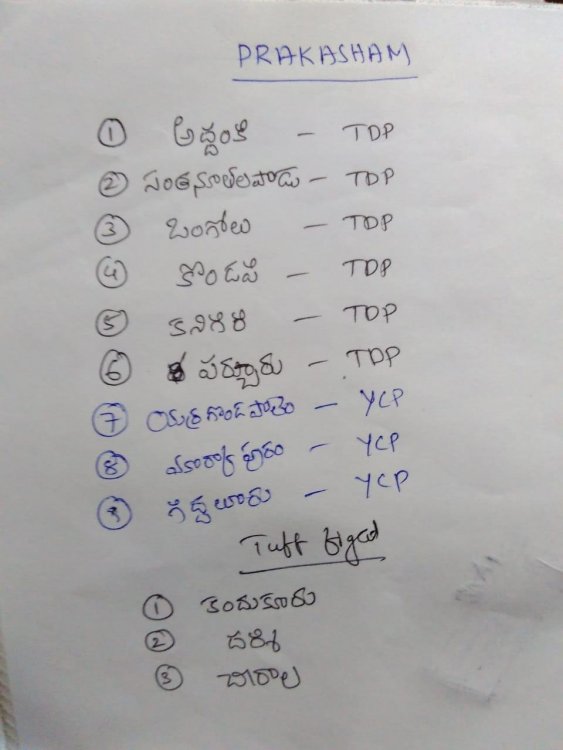 PRAKASHAM
① అద్దంకి - TDP
② సంతనూతలపాడు - TDP
③ ఒంగోలు - TDP
④ కొండపి - TDP
⑤ కనిగిరి - TDP
⑥ పర్చూరు - TDP
⑦ యర్రగొండపాలెం - YCP
⑧ మార్కాపురం - YCP
⑨ గిద్దలూరు - YCP
Tuff
① కందుకూరు
② దర్శి
③ చీరాల